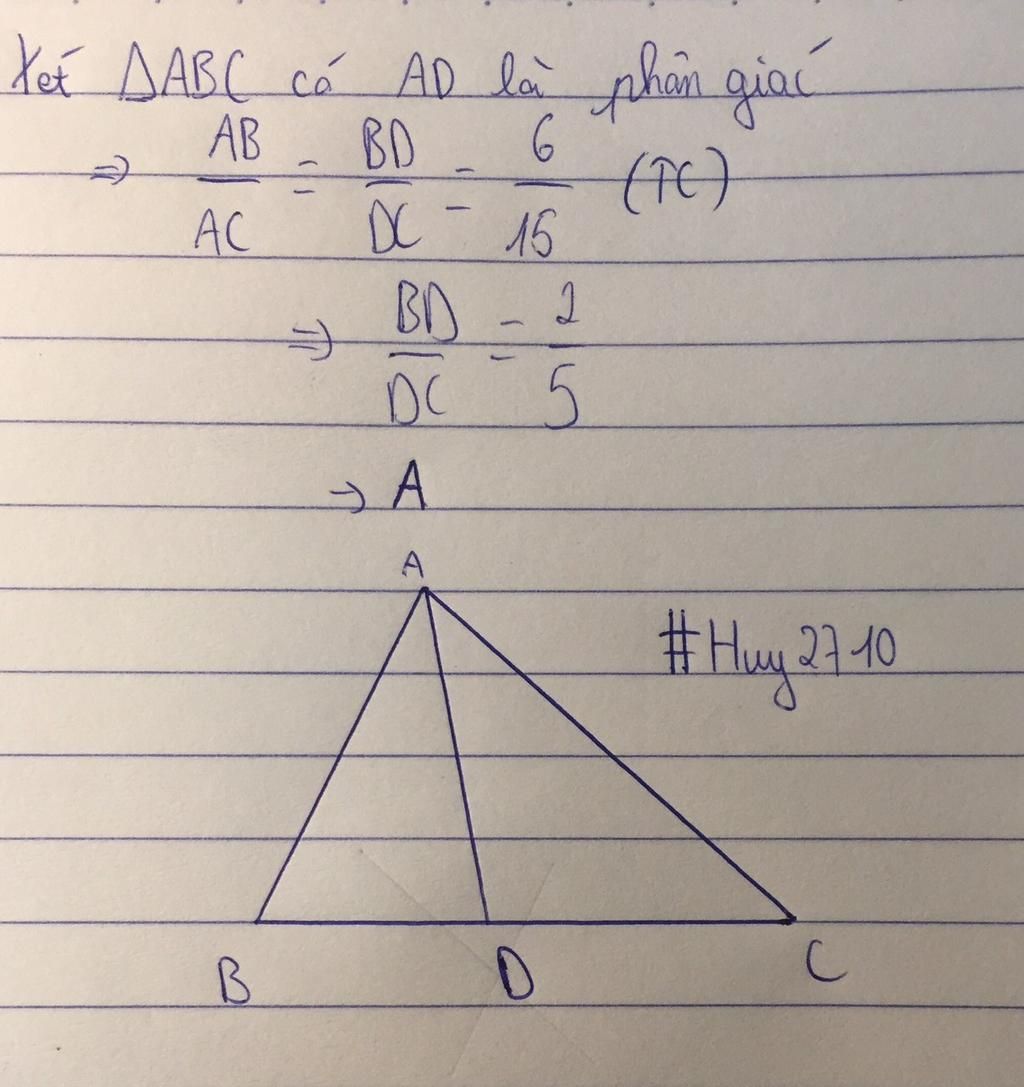 Xét ΔABC có AD là phân giác
⇒ AB/AC = BD/DC = 6/15 (TC)
⇒ BD/DC = 2/5
→ A
A
#Huy2710
B D C